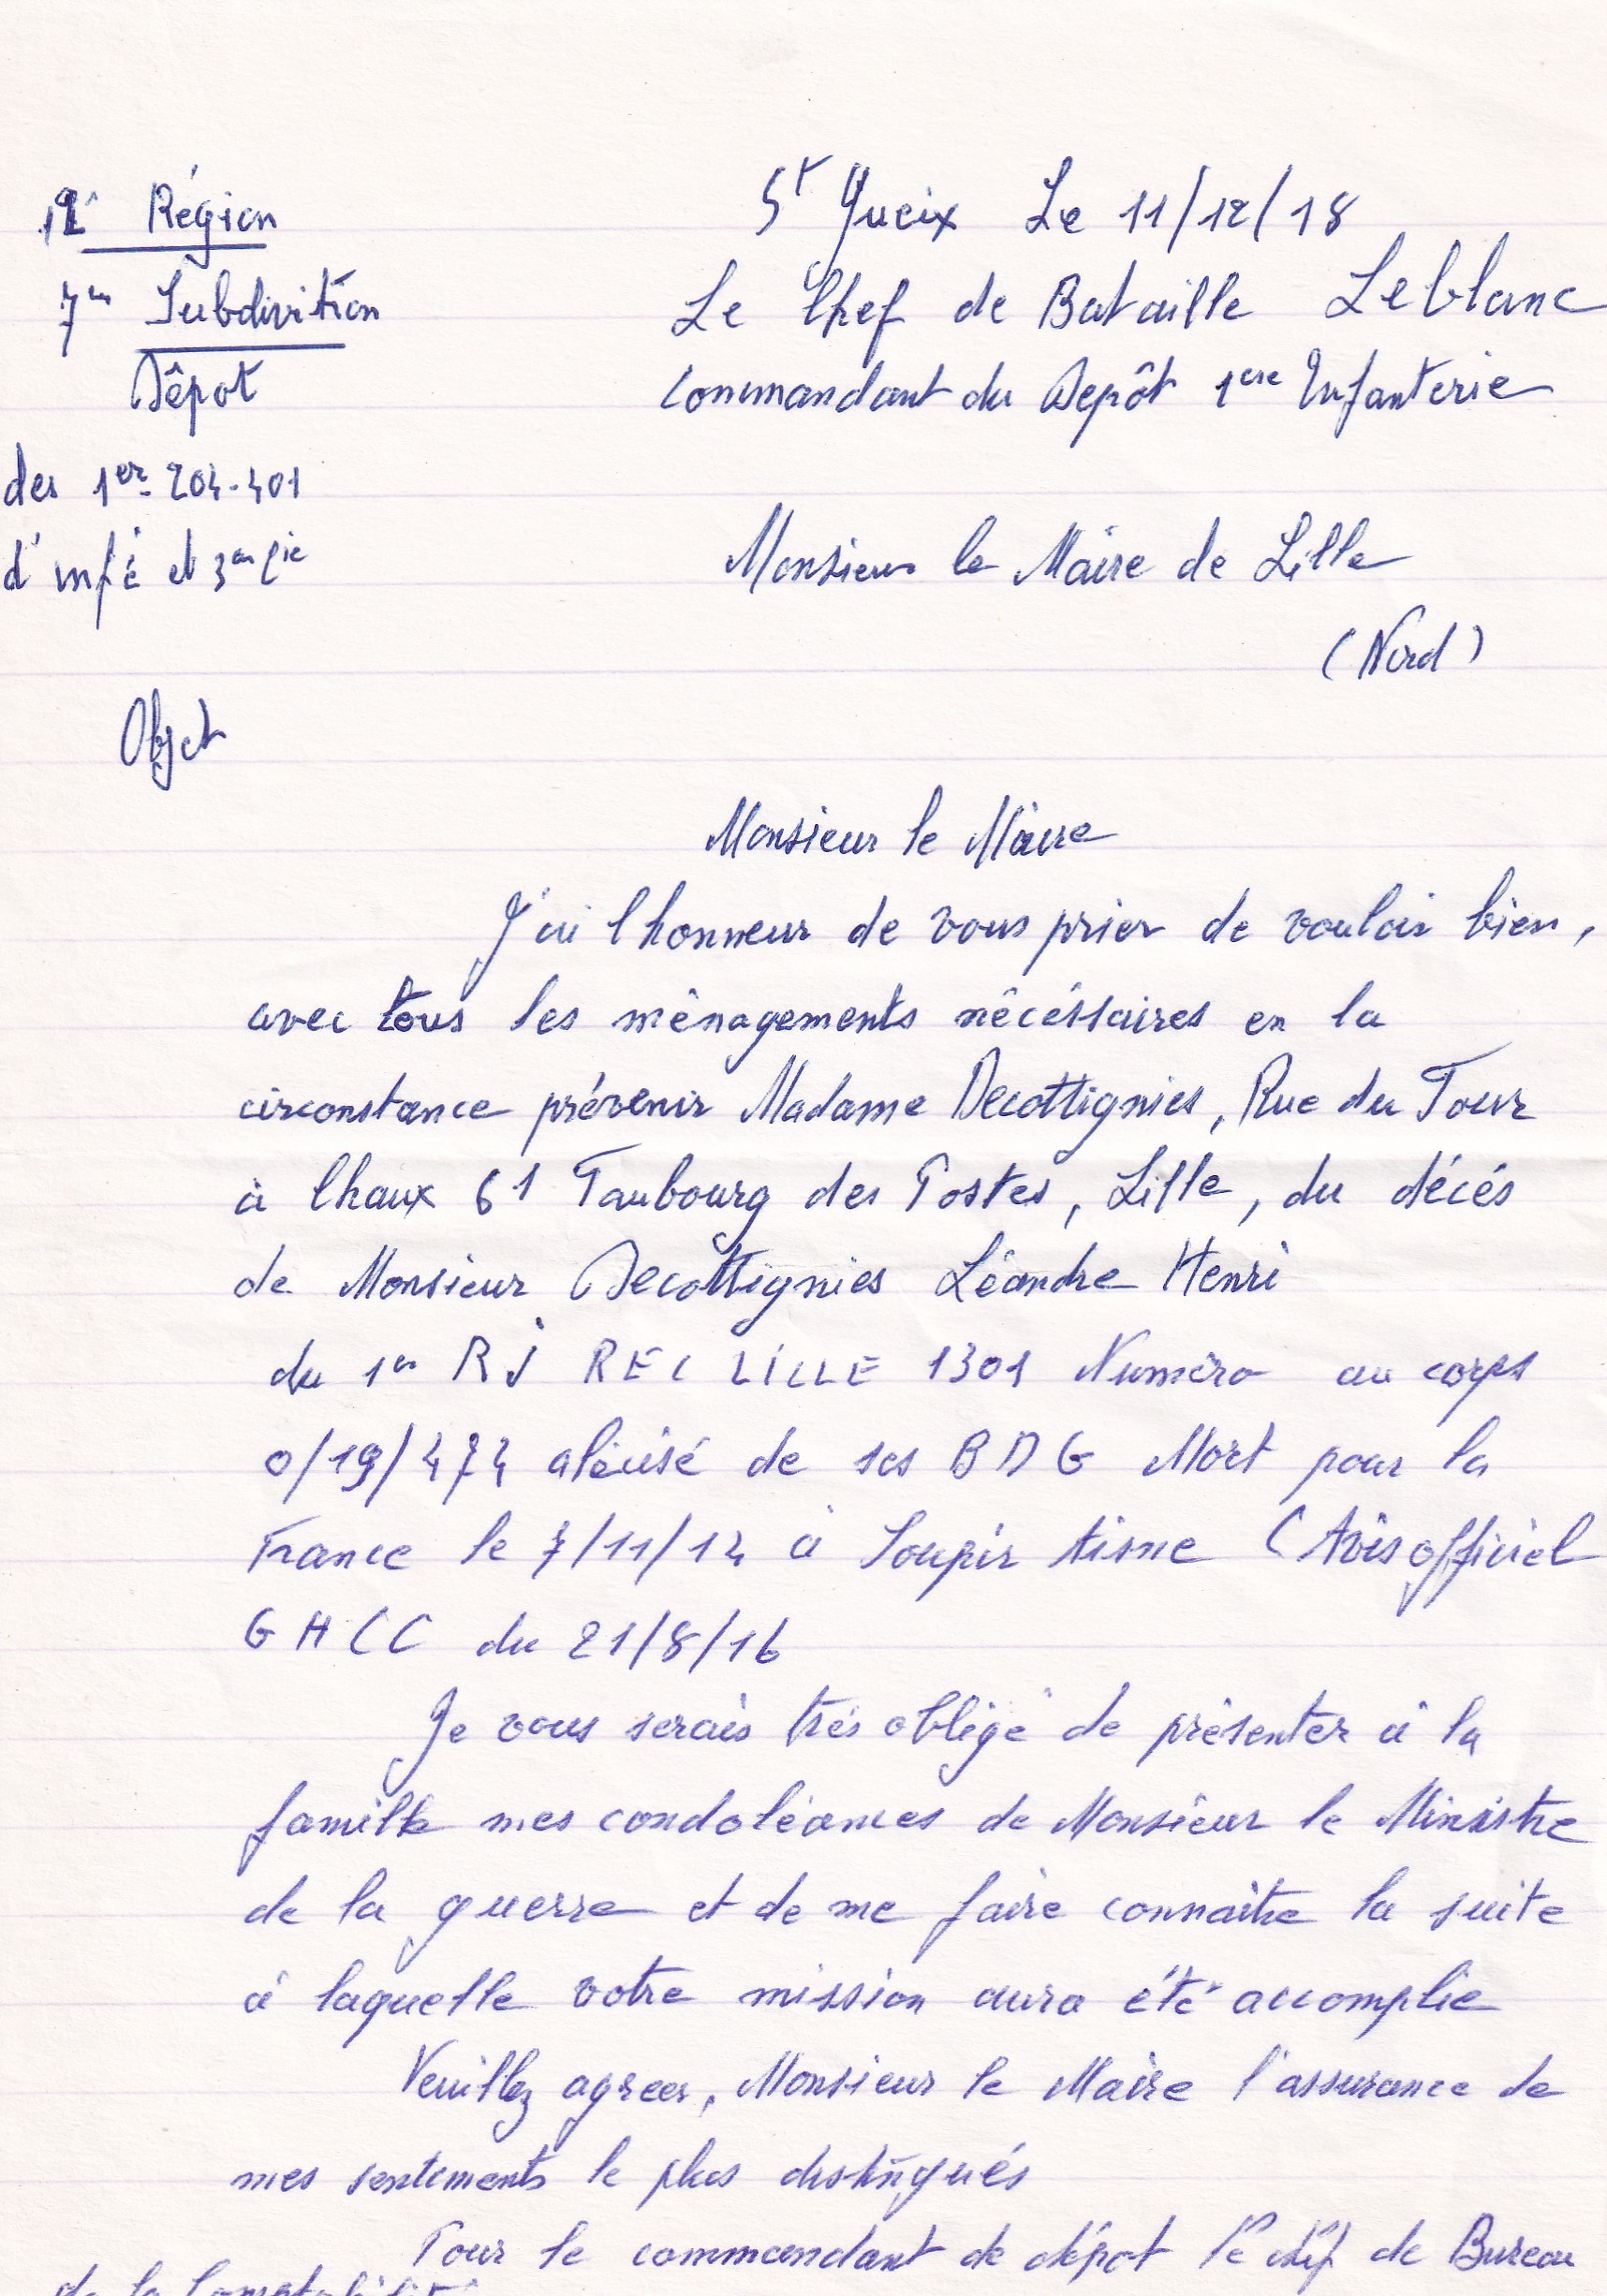 12e Région
St Yrieix Le 11/12/18
7em Subdivition
Le Chef de Bataille Leblanc
Dêpot
Commandant du Depôt 1ere Infanterie
des 1er 204-401
d'infé et 3em Cie
Monsieur le Maire de Lille
(Nord)
Objet
Monsieur le Maire
J'ai l honneur de vous prier de vouloir bien,
avec tous les mènagements nécéssaires en la
circonstance prévenir Madame Decottignies, Rue du Four
à Chaux 61 Faubourg des Postes, Lille, du décés
de Monsieur Decottignies Léandre Henri
du 1er RI REC LILLE 1301 Numéro au corps
0/19/474 de ses B D G Mort pour la
France le 7/11/14 à Soupir Aisne (Avis officiel
G H C C du 21/8/16
Je vous serais trés obligé de présenter à la
famille mes condoléances de Monsieur le Ministre
de la guerre et de me faire connaitre la suite
à laquelle votre mission aura été accomplie
Veuillez agreer, Monsieur le Maire l'assurance de
mes sentiments le plus distingués
Pour le commandant de dépot le chef de Bureau
de la Comptabilité